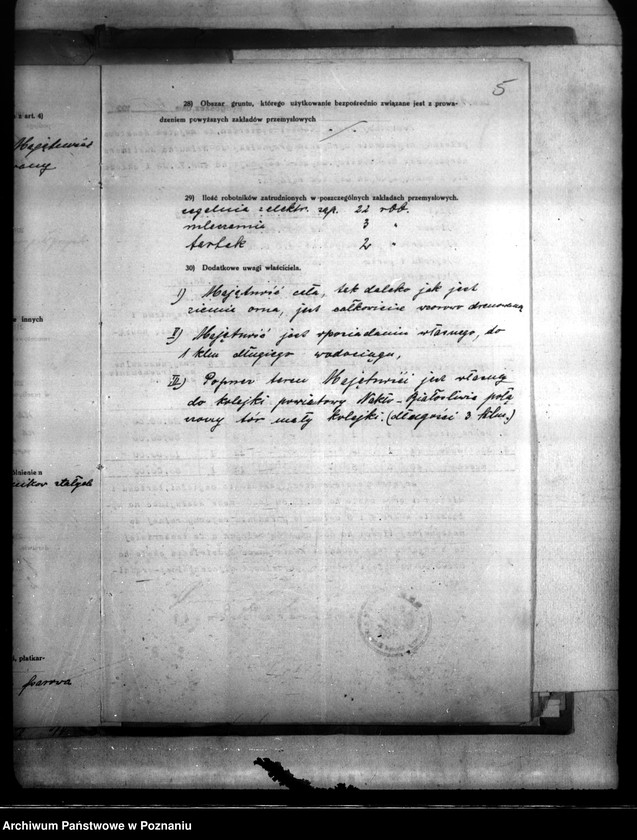 5
28) Obszar gruntu, którego użytkowanie bezpośrednio związane jest z prowa-
dzeniem powyższych zakładów przemysłowych
z art. 4)
29) Ilość robotników zatrudnionych w poszczególnych zakładach przemysłowych.
cegielnia: elektr. zap. 22 rob.
mleczarnia 3 "
tartak 2 "
30) Dodatkowe uwagi właściciela.
I) Majętność cała, tak daleko jak jest
ziemia orna, jest całkowicie wzorowo drenowana
w innych
II) Majętność jest w posiadaniu własnego, do
1 klm długiego wodociągu,
III) Poprzez teren Majętności jest własny
do kolejki powiatowej Nakło-Białośliwie połą
tór mały kolejki. (długości 3 klm.)
stałych
, płatkar-
parowa
Archiwum Państwowe w Poznaniu